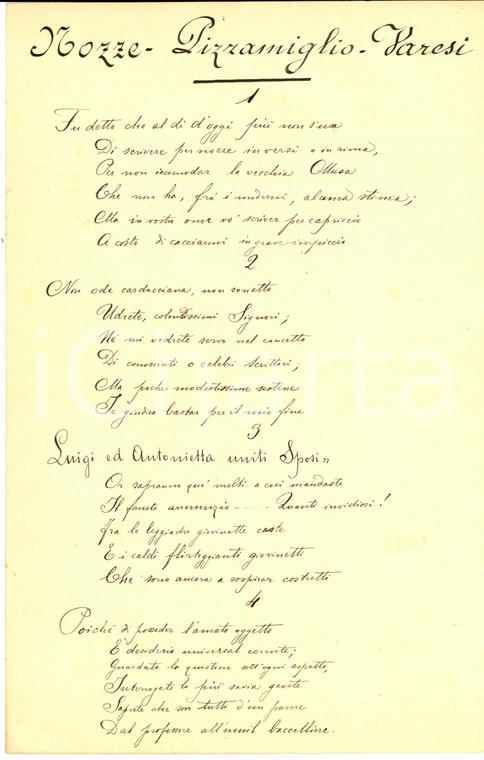 Nozze - Pizzamiglio - Varesi
1
Fu detto che al dì d'oggi più non s'usa
Di scrivere per nozze in versi o in rima,
Per non iscomodar la vecchia Musa
Che non ha, frà i moderni, alcuna stima;
Ma in vostro onor vo' scriver per capriccio
A costo di cacciarmi in grave impiccio
2
Non ode carducciana, non sonetto
Udrete, colendissimi Signori;
Nè mi vedrete servo nel concetto
Di conosciuti o celebri scrittori;
Ma poche modestissime sestine
Io giudico bastar per il mio fine
3
Luigi ed Antonietta uniti Sposi"
Or sapranno que' molti a cui mandaste
Il fausto annunzio ---- Quanti invidiosi!
Fra le leggiadre giovinette caste
E i caldi flirteggianti giovinetti
Che sono ancora a sospirar costretti
4
Poichè di posseder l'amato oggetto
È desiderio universal cocente;
Guardate la question sott'ogni aspetto,
Interrogate la più savia gente
Sapete che son tutti d'un parere
Dal professore all'umil baccelliere.
iCarta